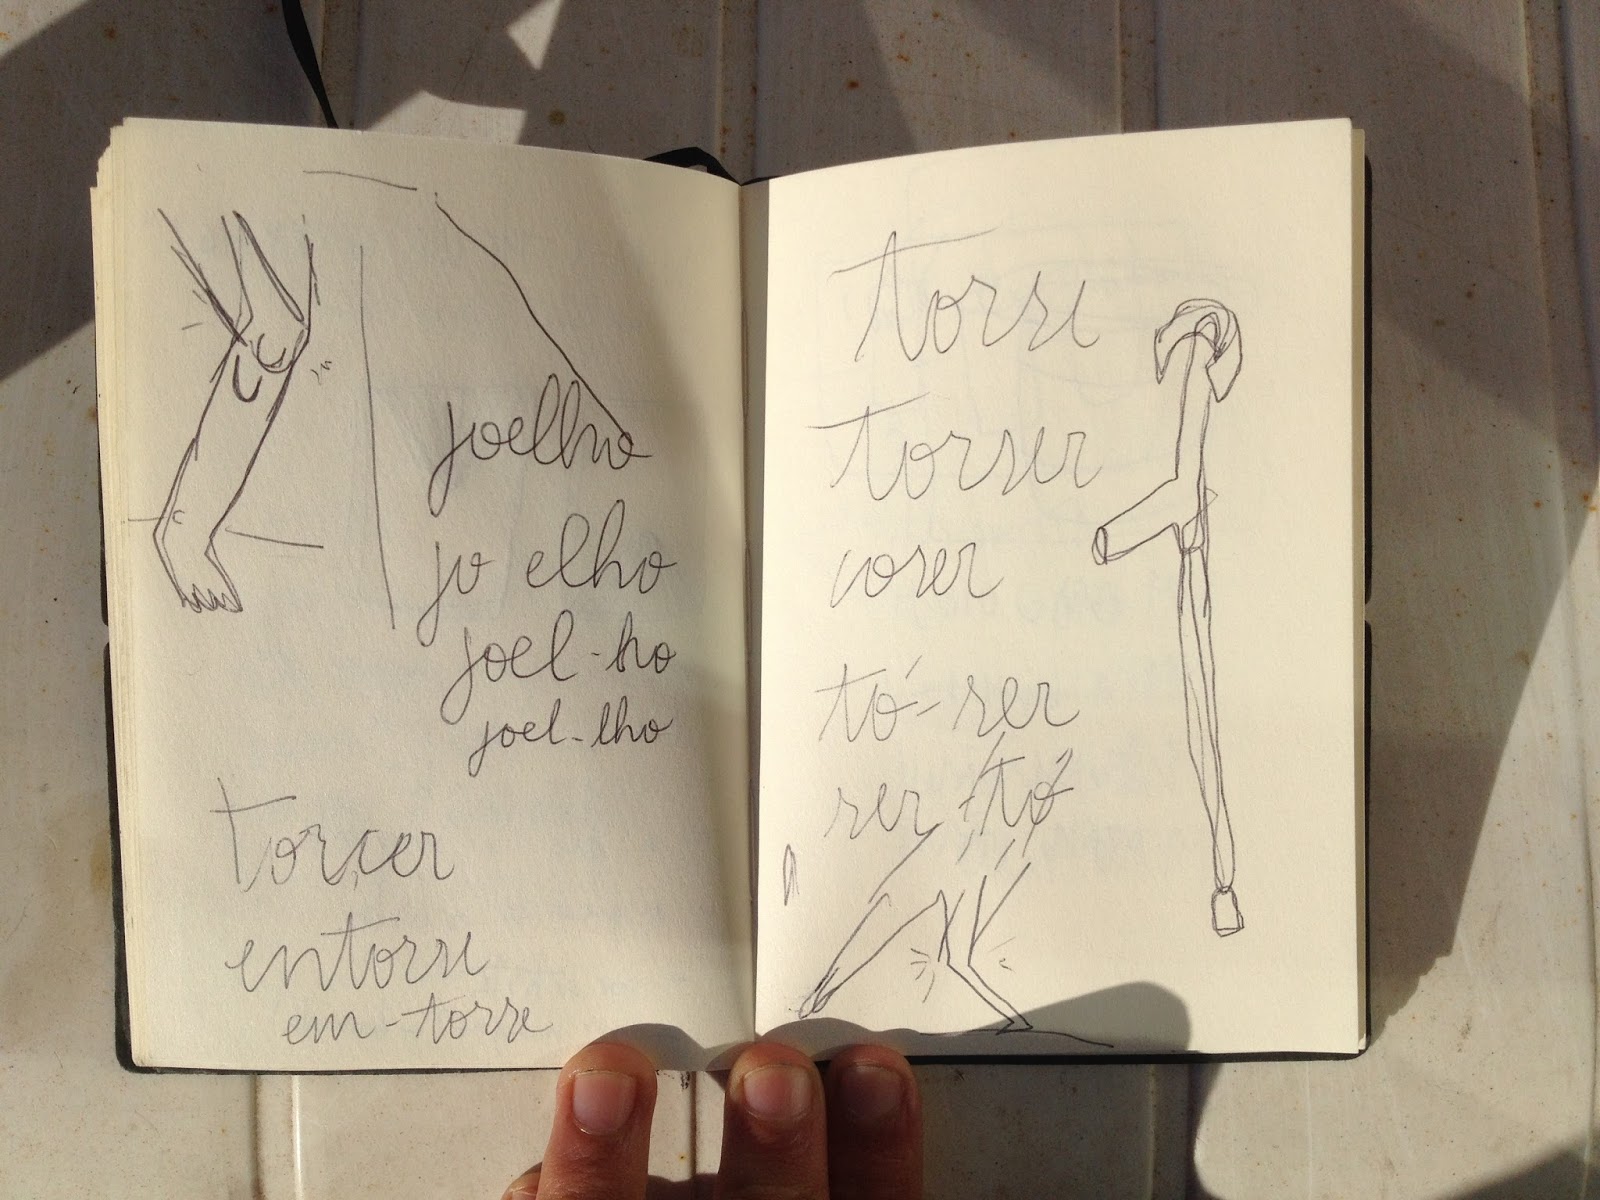 joelho
jo elho
joel-ho
joel-lho
torcer
entorse
em-torse
torse
torser
coser
tó-ser
ser-tó